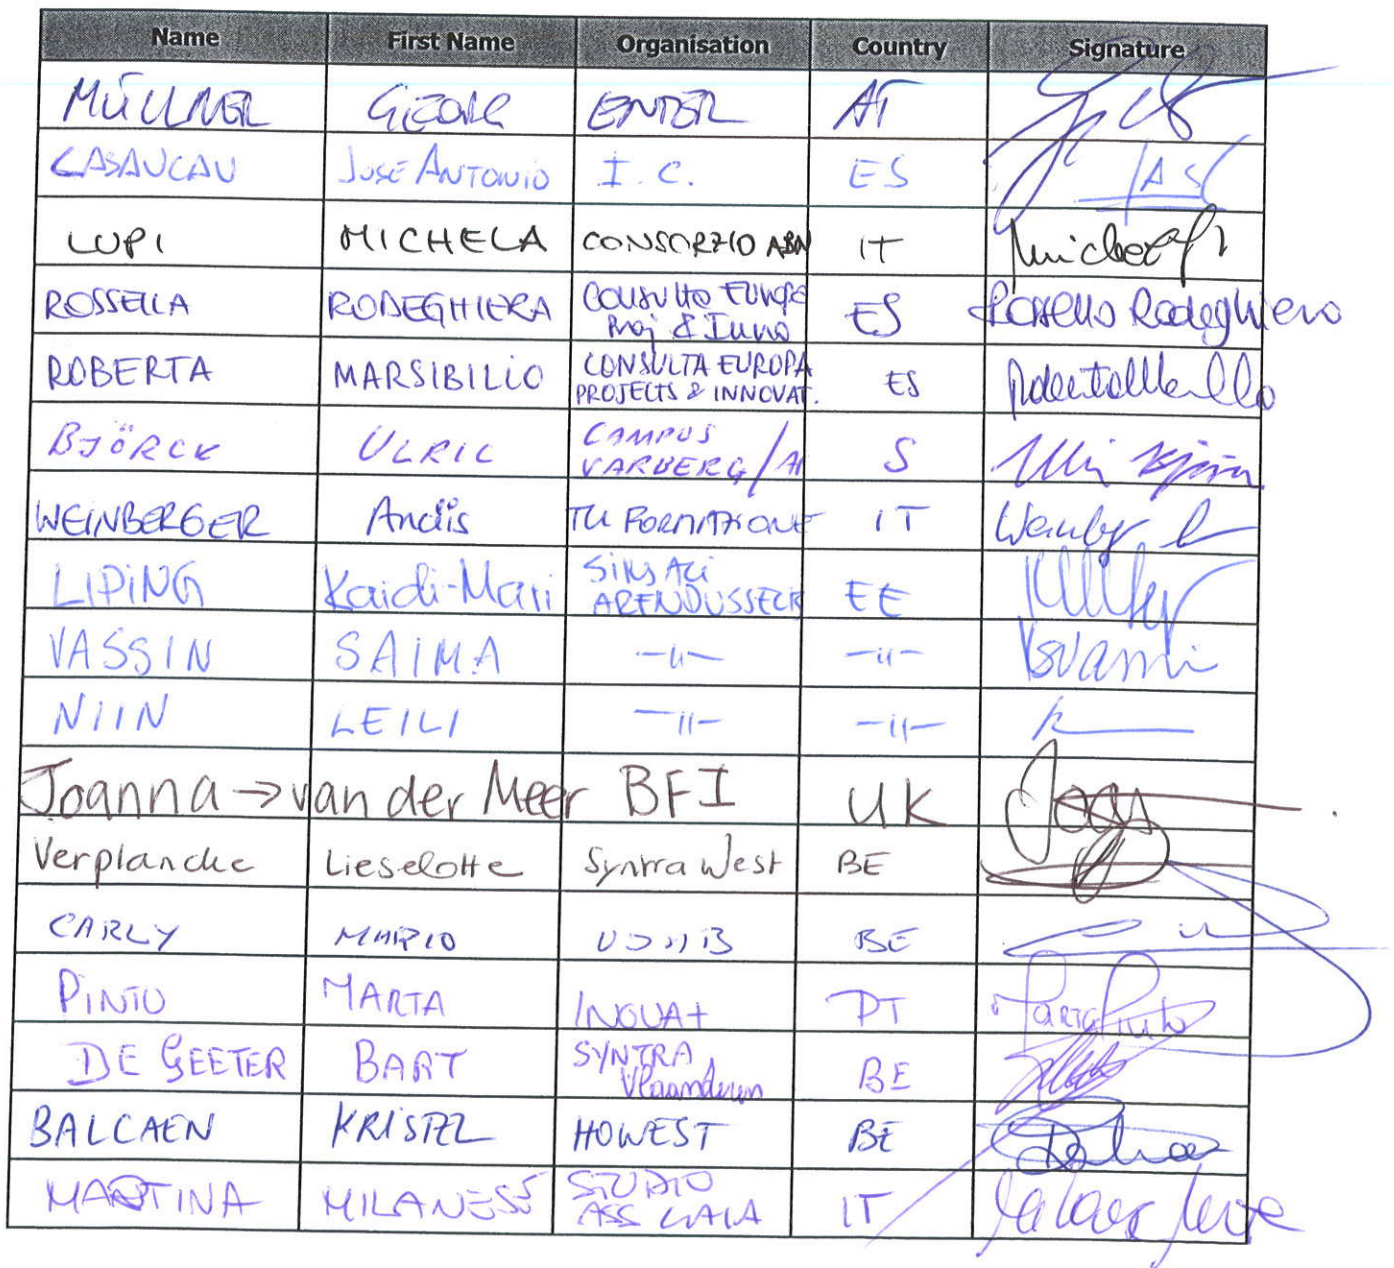 Name First Name Organisation Country Signature
MÜLLNER GEORG ENTER AT
CASAUCAU JOSÉ ANTONIO I.C. ES
LUPI MICHELA CONSORZIO ABN IT
ROSSELLA RODEGHIERA Consulta Europa Proj & Inno ES Rossella Rodeghiero
ROBERTA MARSIBILIO CONSULTA EUROPA PROJECTS & INNOVAT. ES
BJÖRCK ULRIC CAMPUS VARBERG/ S
WEINBERGER Andis TU FORMAZIONE IT
LIPING Kaidi-Mari SIHTASU ARENDUSSELTS EE
VASSIN SAIMA —"— —"—
NIIN LEILI —"— —"—
Joanna → van der Meer BFI UK
Verplancke Lieselotte Syntra West BE
CARLY MARIO BE
PINTO MARTA INOVA+ PT Marta Pinto
DE GEETER BART SYNTRA Vlaanderen BE
BALCAEN KRISTEL HOWEST BE
MARTINA MILANESE STUDIO IT